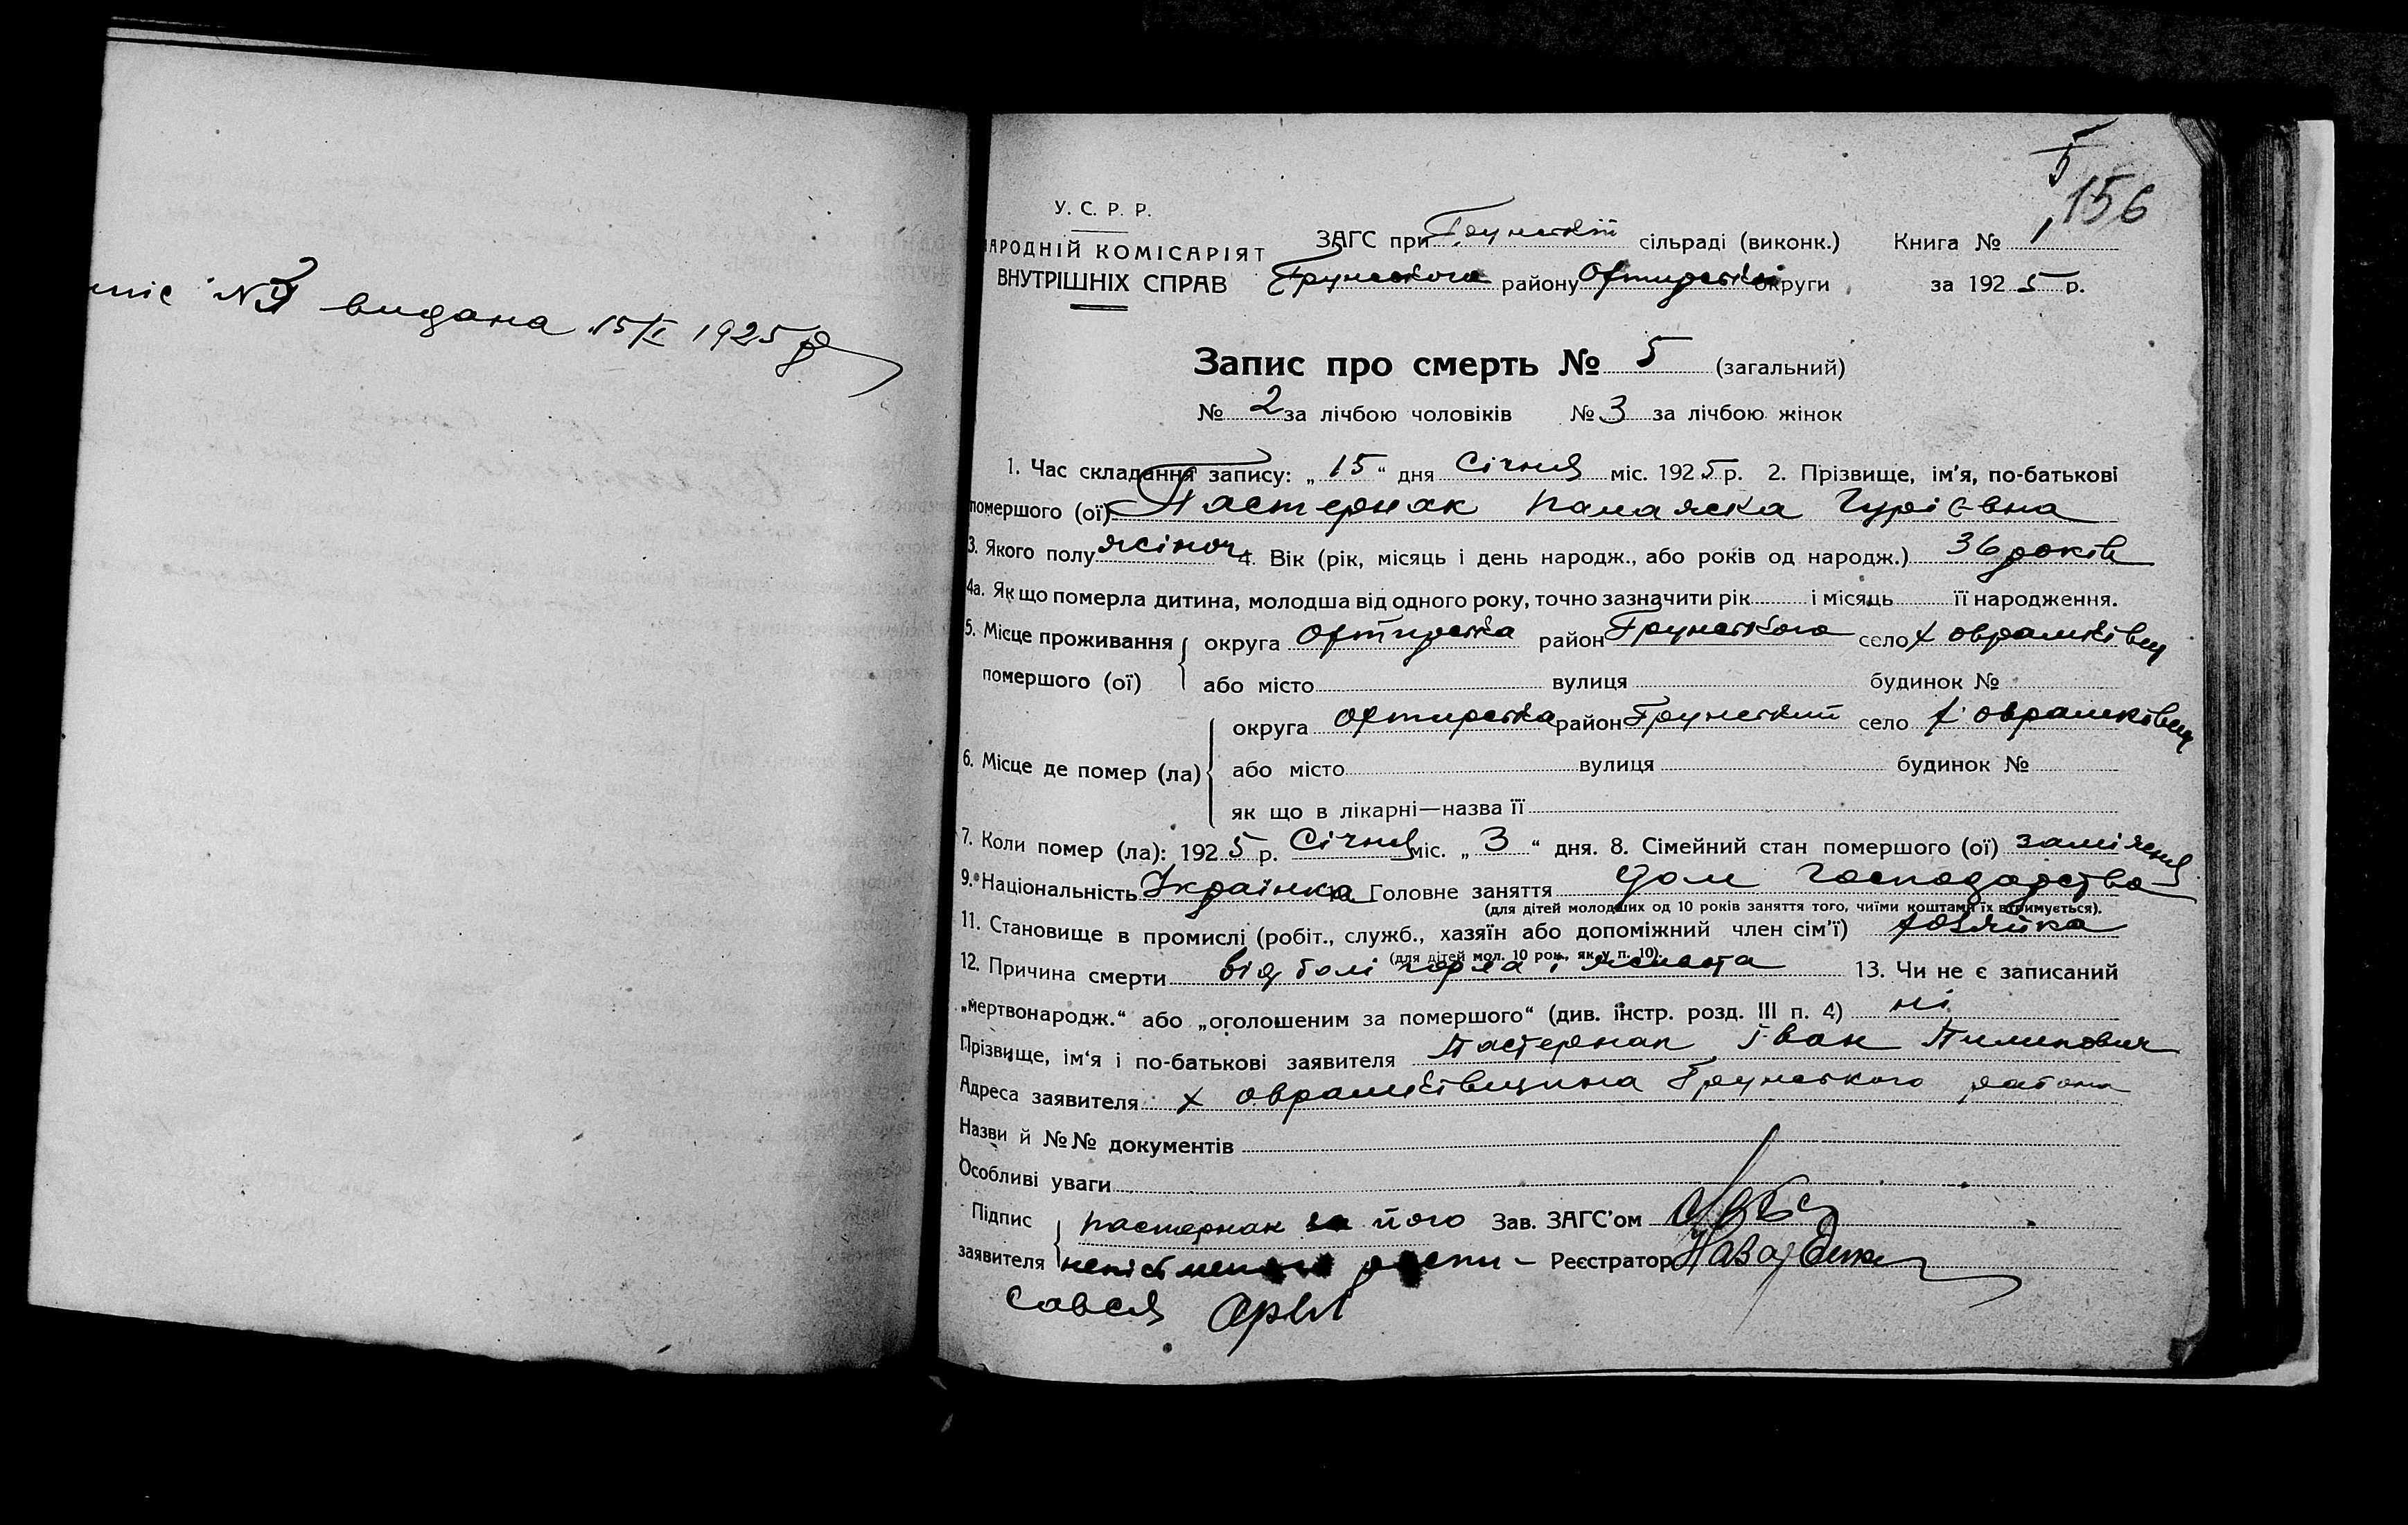 № 3 видана 15/I 1925 р
5
156
У. С. Р. Р.
НАРОДНІЙ КОМІСАРІЯТ
ВНУТРІШНІХ СПРАВ
ЗАГС при Грунський сільраді (виконк.) Книга № 1
Грунського району Охтирської округи за 1925 р.
Запис про смерть № 5 (загальний)
№ 2 за лічбою чоловіків № 3 за лічбою жінок
1. Час складання запису: „ 15 “ дня Січня міс. 1925 р. 2. Прізвище, ім'я, по-батькові
помершого (ої) Пастернак Палажка Гурієвна
3. Якого полу жіноч 4. Вік (рік, місяць і день народж., або років од народж.) 36 років
4а. Як що померла дитина, молодша від одного року, точно зазначити рік і місяць її народження.
5. Місце проживання округа Охтирська район Грунського село х Оврамківщ
помершого (ої) або місто вулиця будинок №
округа Охтирська район Грунський село х. Оврамківщ
6. Місце де помер (ла) або місто вулиця будинок №
як що в лікарні—назва її
7. Коли помер (ла): 1925 р. Січня міс. „ 3 “ дня. 8. Сімейний стан помершого (ої) заміжня
9. Національність Українка 10. Головне заняття дом господарство
(для дітей молодших од 10 років заняття того, чиїми коштами їх втримується).
11. Становище в промислі (робіт., служб., хазяїн або допоміжний член сім'ї) хозяйка
(для дітей мол. 10 рок., як у п. 10).
12. Причина смерти від болі горла і живота 13. Чи не є записаний
„мертвонародж.“ або „оголошеним за помершого“ (див. інстр. розд. III п. 4) ні
Прізвище, ім'я і по-батькові заявителя Пастернак Іван Пилипович
Адреса заявителя х Оврамківщина Грунського района
Назви й №№ документів
Особливі уваги
Підпис Пастернак за його Зав. ЗАГС'ом
заявителя Реєстратор